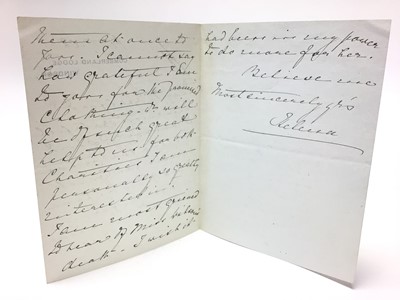 them at once to
you. I cannot say
how grateful I am
to you for the promised
Clothing. It will
be of such great
help to us for both
Charities I am
personally so greatly
interested in.
I am most grieved
to hear of Miss
death. I wish it
had been in my power
to do more for her.
Believe me
Most sincerely yrs
Helena